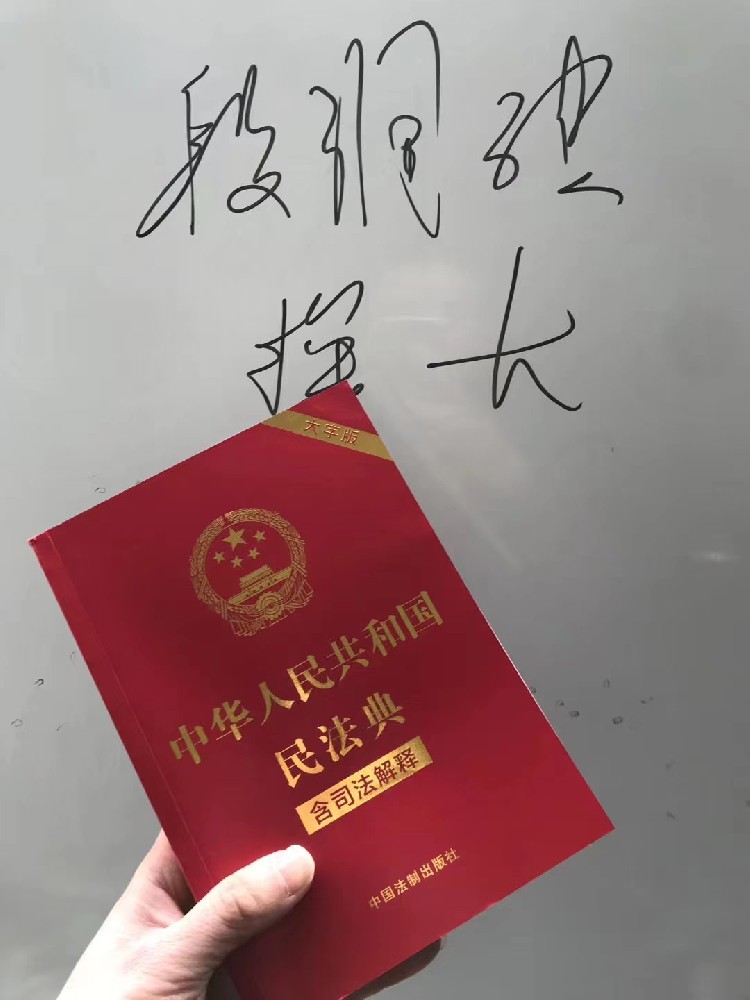 段润
探长
大字版
中华人民共和国
民法典
含司法解释
中国法制出版社